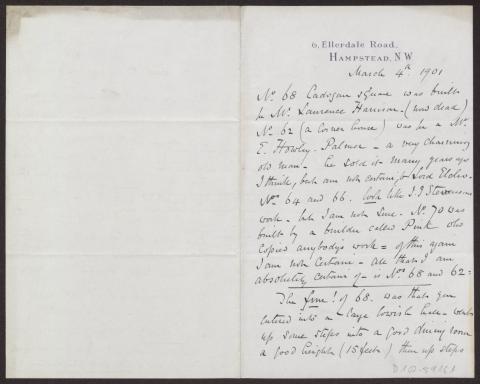 6, Ellerdale Road,
HAMPSTEAD, N.W
March 4th 1901
No 68 Cadogan Square was built
by Mr Laurence Harrison - (now dead)
No 62 (a corner house) was by a Mr
E. Howley. Palmer - a very charming
old man - he sold it many years ago
I think, but am not certain, to Lord
Nos 64 and 66. look like J.J Stevensons
work - but I am not sure. No 70 was
built by a builder called Pink who
copies anybodys work = of this again
I am not certain - all that I am
absolutely certain of - is Nos 68 and 62 =
The ! of 68. was that you
entered into a large lowish hall - went
up some steps into a good dining room
a good height (15 feet) then up steps